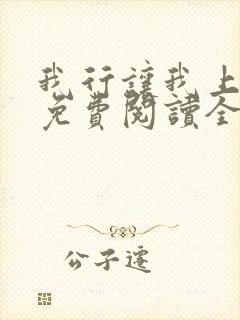 我行讓我上
免費閱讀全
公子遷